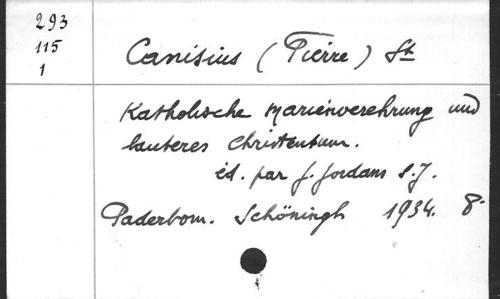 293
115
1
Canisius (Pierre) St
Katholische Marienverehrung und
lauteres Christentum.
éd. par J. Jordans S.J.
Paderborn. Schöningh 1934. 8°